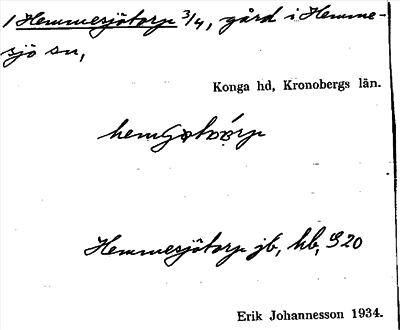 1 Hemmesjötorp 3/4, gård i Hemme-
sjö sn,
Konga hd, Kronobergs län.
Hemmesjötorp jb, hb, S20
Erik Johannesson 1934.